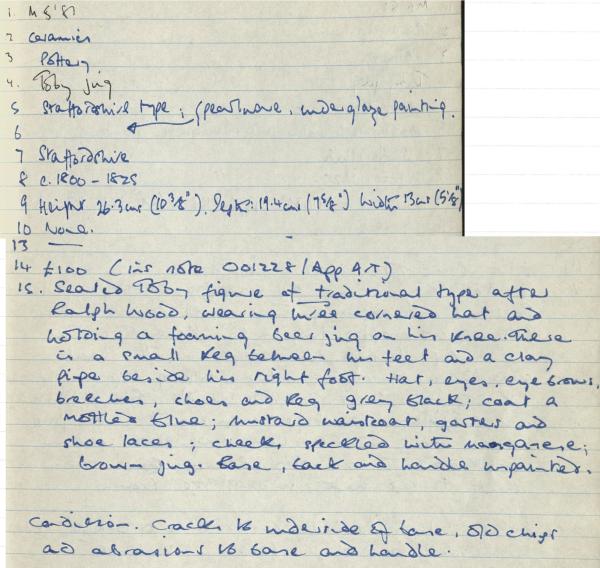 1. MG '87
2 Ceramics
3 Pottery
4. Toby jug
5 Staffordshire type; (pearlware, underglaze painting.
6
7 Staffordshire
8 c. 1800 - 1825
9 Height 26.3cms (10 3/8"). Depth: 19.4cms (7 5/8") Width 13cms (5 1/8")
10 None.
13 —
14 £100 (ins note 001228/App 9.T)
15. Seated Toby figure of traditional type after
Ralph Wood, wearing three cornered hat and
holding a foaming beer jug on his knee. There
is a small keg between his feet and a clay
pipe beside his right foot. Hat, eyes, eyebrows,
breeches, shoes and keg grey black; coat a
mottled blue; mustard waistcoat, garters and
shoe laces; cheeks speckled with manganese;
brown jug. Base, back and handle unpainted.
Condition. Cracks to underside of base, old chips
ad abrasions to base and handle.